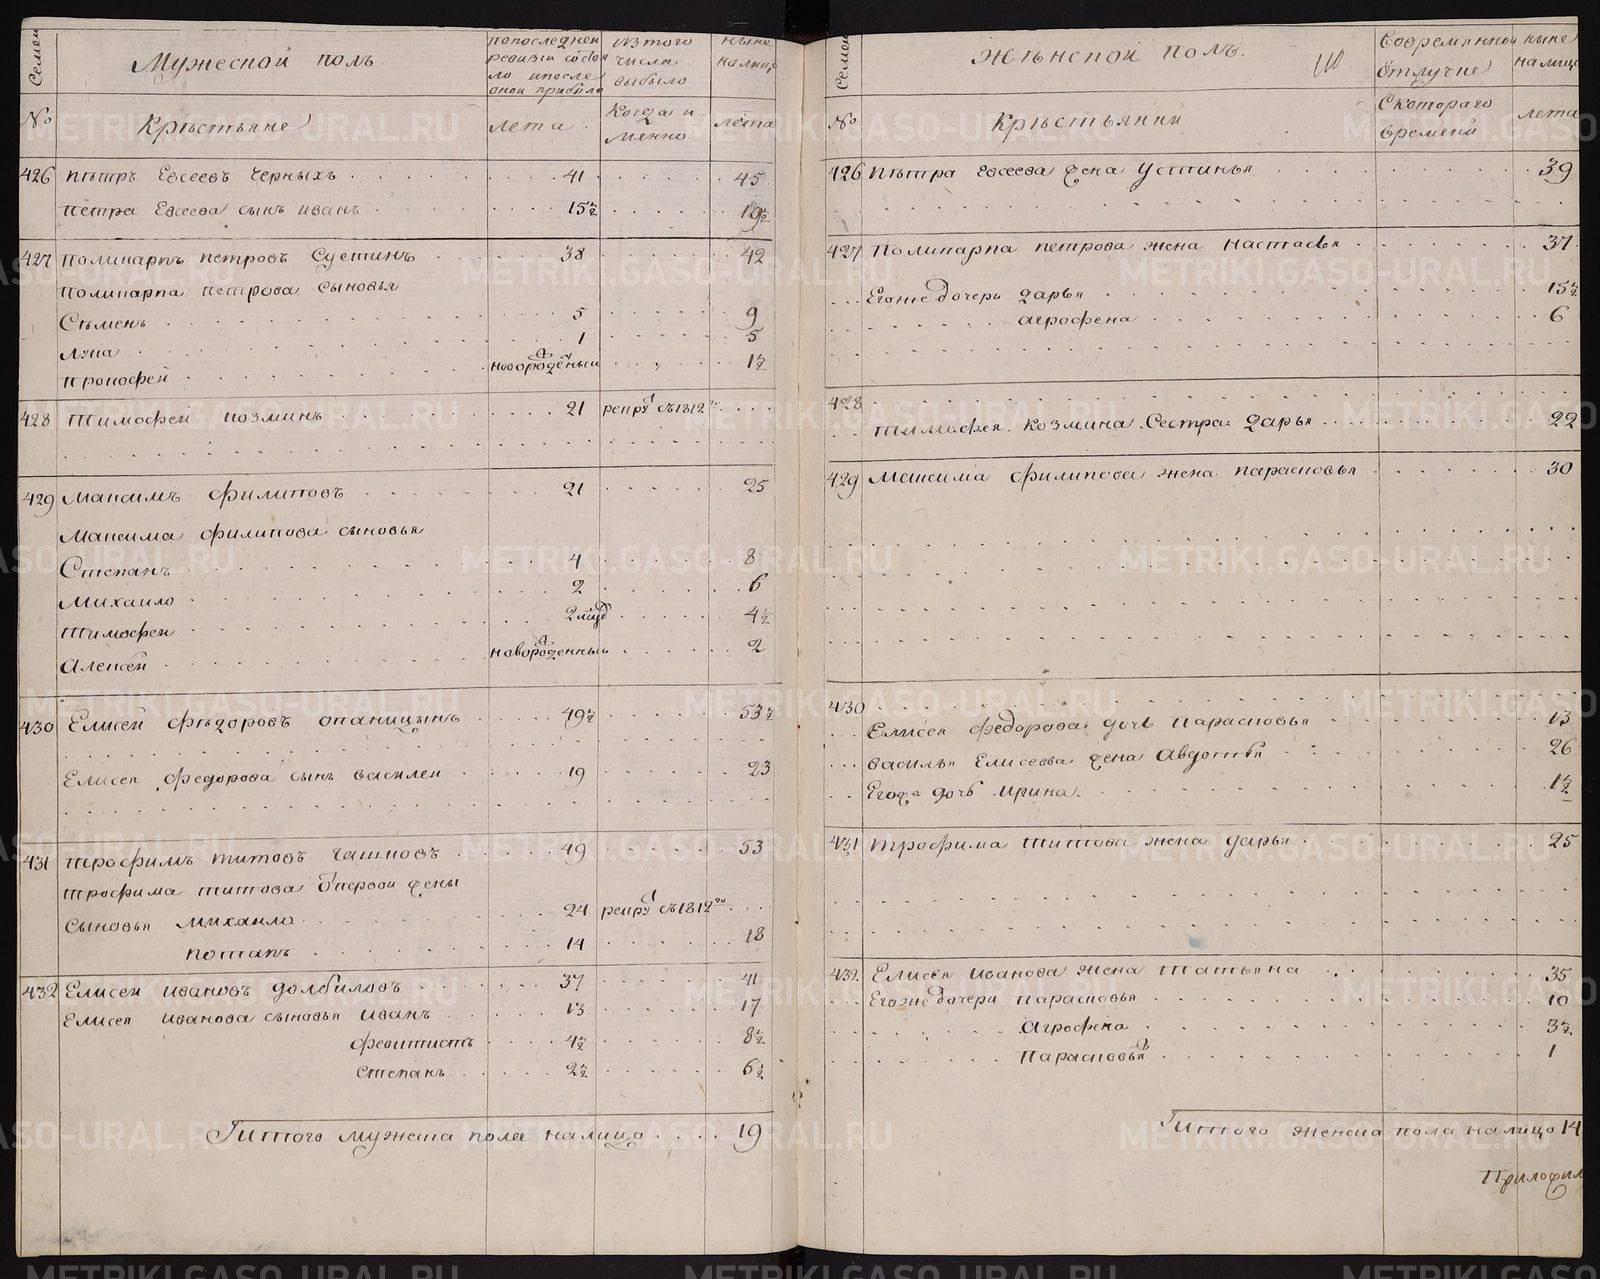 Семеи
Мужеской полъ.
попоследнеи
ревизи состоя
ло ипосле
оной прибыло
изтого
числа
выбыло
ныне
налицо
№
Крестьяне
лета
Когда и
менно.
лета
426 Петръ Евсеевъ Черныхъ 41 45
Петра Евсеева сынъ иванъ 15½ 19½
427 Поликарпъ петровъ Суетинъ 38 42
Поликарпа петрова сыновья
Семенъ 5 9
Лука 1 5
прокофей новорожденый 1½
428 Тимофей козминъ 21 рекрут съ 1812го
429 Максимъ филиповъ 21 25
Максима филипова сыновья
Степанъ 4 8
Михаило 2 6
тимофеи 2 мцд 4½
Алексеи новорожденныи 2
430 Елисей федоровъ опаницынъ 49½ 53½
Елисея федорова сынъ василеи 19 23
431 трофимъ титовъ Чашковъ 49 53
трофима титова отпервои жены
сыновья михаило 24 рекрут съ 1812го
потапъ 14 18
432 Елисеи ивановъ долбиловъ 37 41
Елисея иванова сыновья иванъ 13 17
феоктистъ 4½ 8½
степанъ 2½ 6½
Итого мужеска пола налицо 19
Семеи
Женской полъ.
110
Совремянной
отлучке
ныне
налицо
№
Крестьянки
Скотораго
времени
лета
426 Петра Евсеева жена Устинья 39
427 Поликарпа петрова жена настасья 37
Егоже дочери дарья 15½
агрофена 6
428
Тимофея Козмина Сестра дарья 22
429 Максима филипова жена парасковья 30
430
Елисея федорова дочь парасковья 13
василья Елисеева жена Авдотья 26
Егожа дочь ирина 1½
431 трофима титова жена дарья 25
432 Елисея иванова жена татьяна 35
Егоже дочери парасковья 10
Агрофена 3½
парасковья 1
Итого женска пола налицо 14
METRIKI.GASO-URAL.RU